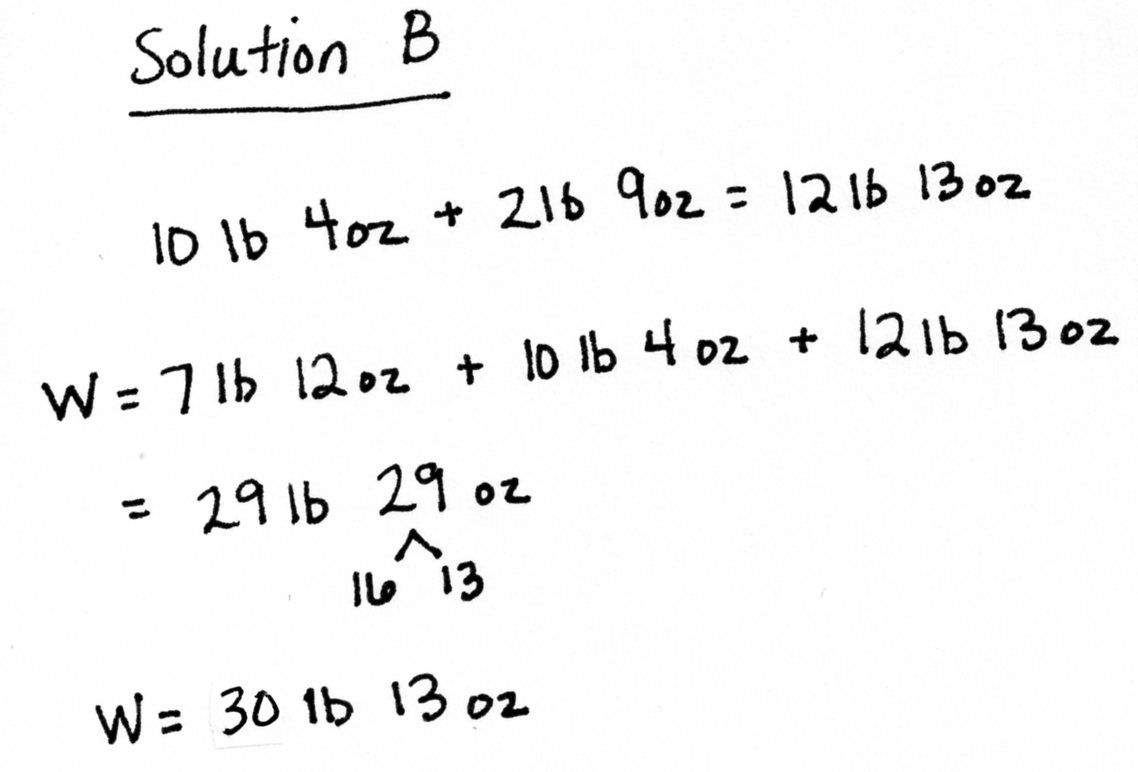 Solution B
10 lb 4oz + 2lb 9oz = 12 lb 13 oz
W = 7 lb 12 oz + 10 lb 4 oz + 12 lb 13 oz
= 29 lb 29 oz
16 13
W = 30 lb 13 oz